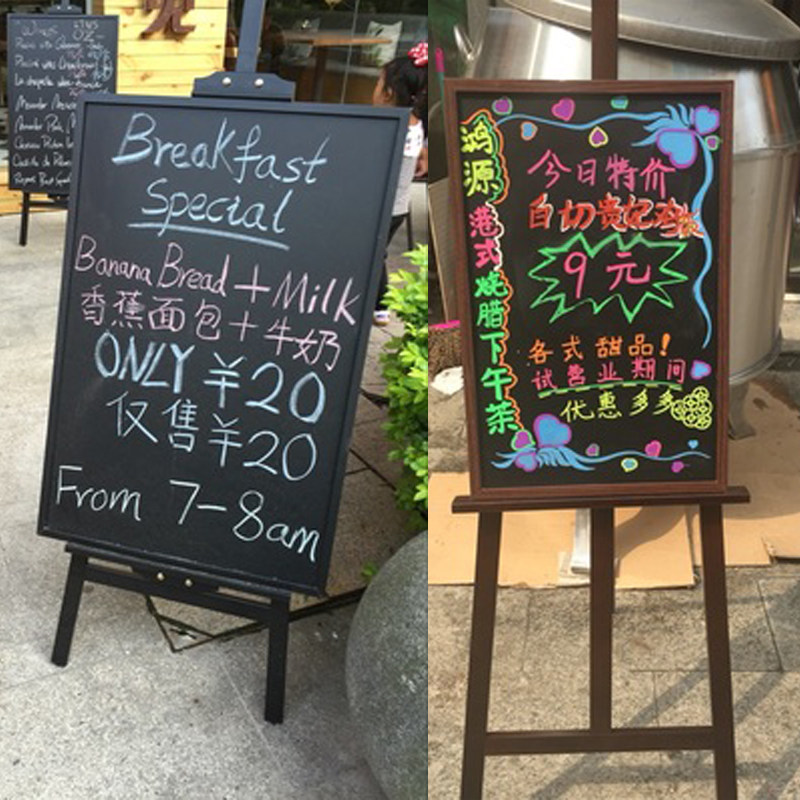 Breakfast
Special
Banana Bread + Milk
香蕉面包+牛奶
ONLY ¥20
仅售¥20
From 7-8am
鸿源 港式烧腊下午茶
今日特价
白切贵妃鸡
9元
各式甜品!
试营业期间
优惠多多